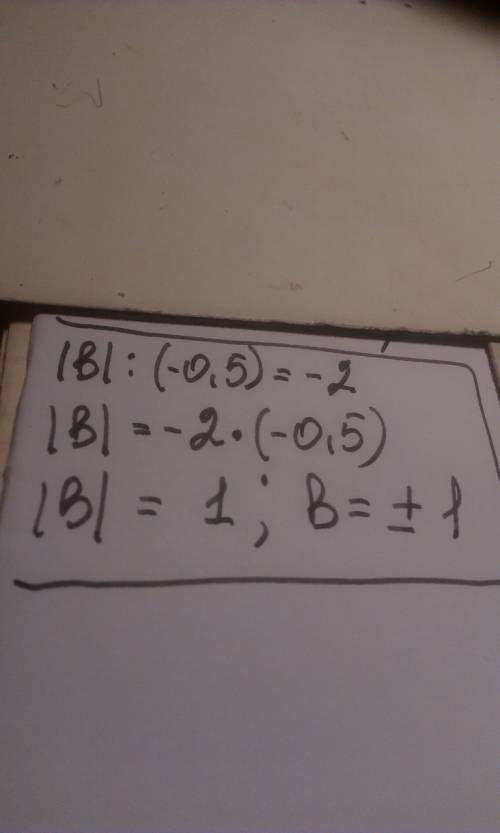 |B| : (-0,5) = -2
|B| = -2 · (-0,5)
|B| = 1 ; B = ± 1